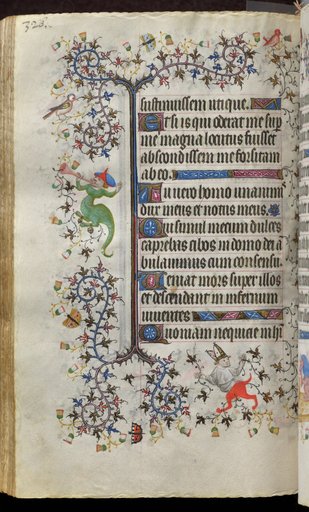 328.
sustinuissem utique.
Et si is qui oderat me sup
me magna locutus fuisset
abscondissem me forsitam
ab eo.
Tu vero homo unanimis
dux meus et notus meus.
Qui simul mecum dulces
capiebas cibos in domo dei
bulauimus cum consensu.
Ueniat mors super illos
et descendant in infernum
uiuentes
Quoniam nequicie in h